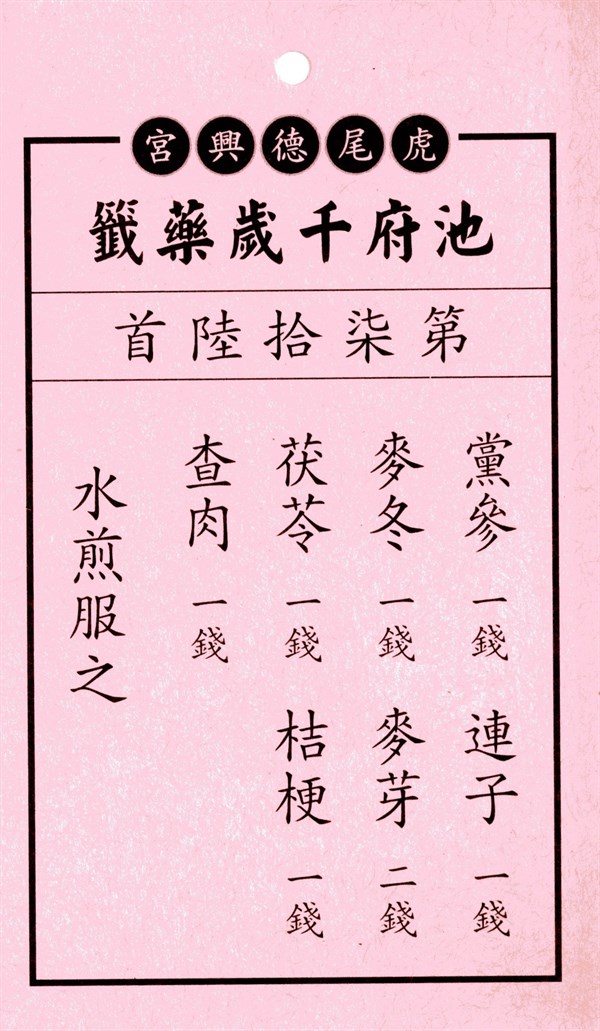 虎尾德興宮
池府千歲藥籤
第柒拾陸首
黨參 一錢 連子 一錢
麥冬 一錢 麥芽 二錢
茯苓 一錢 桔梗 一錢
查肉 一錢
水煎服之